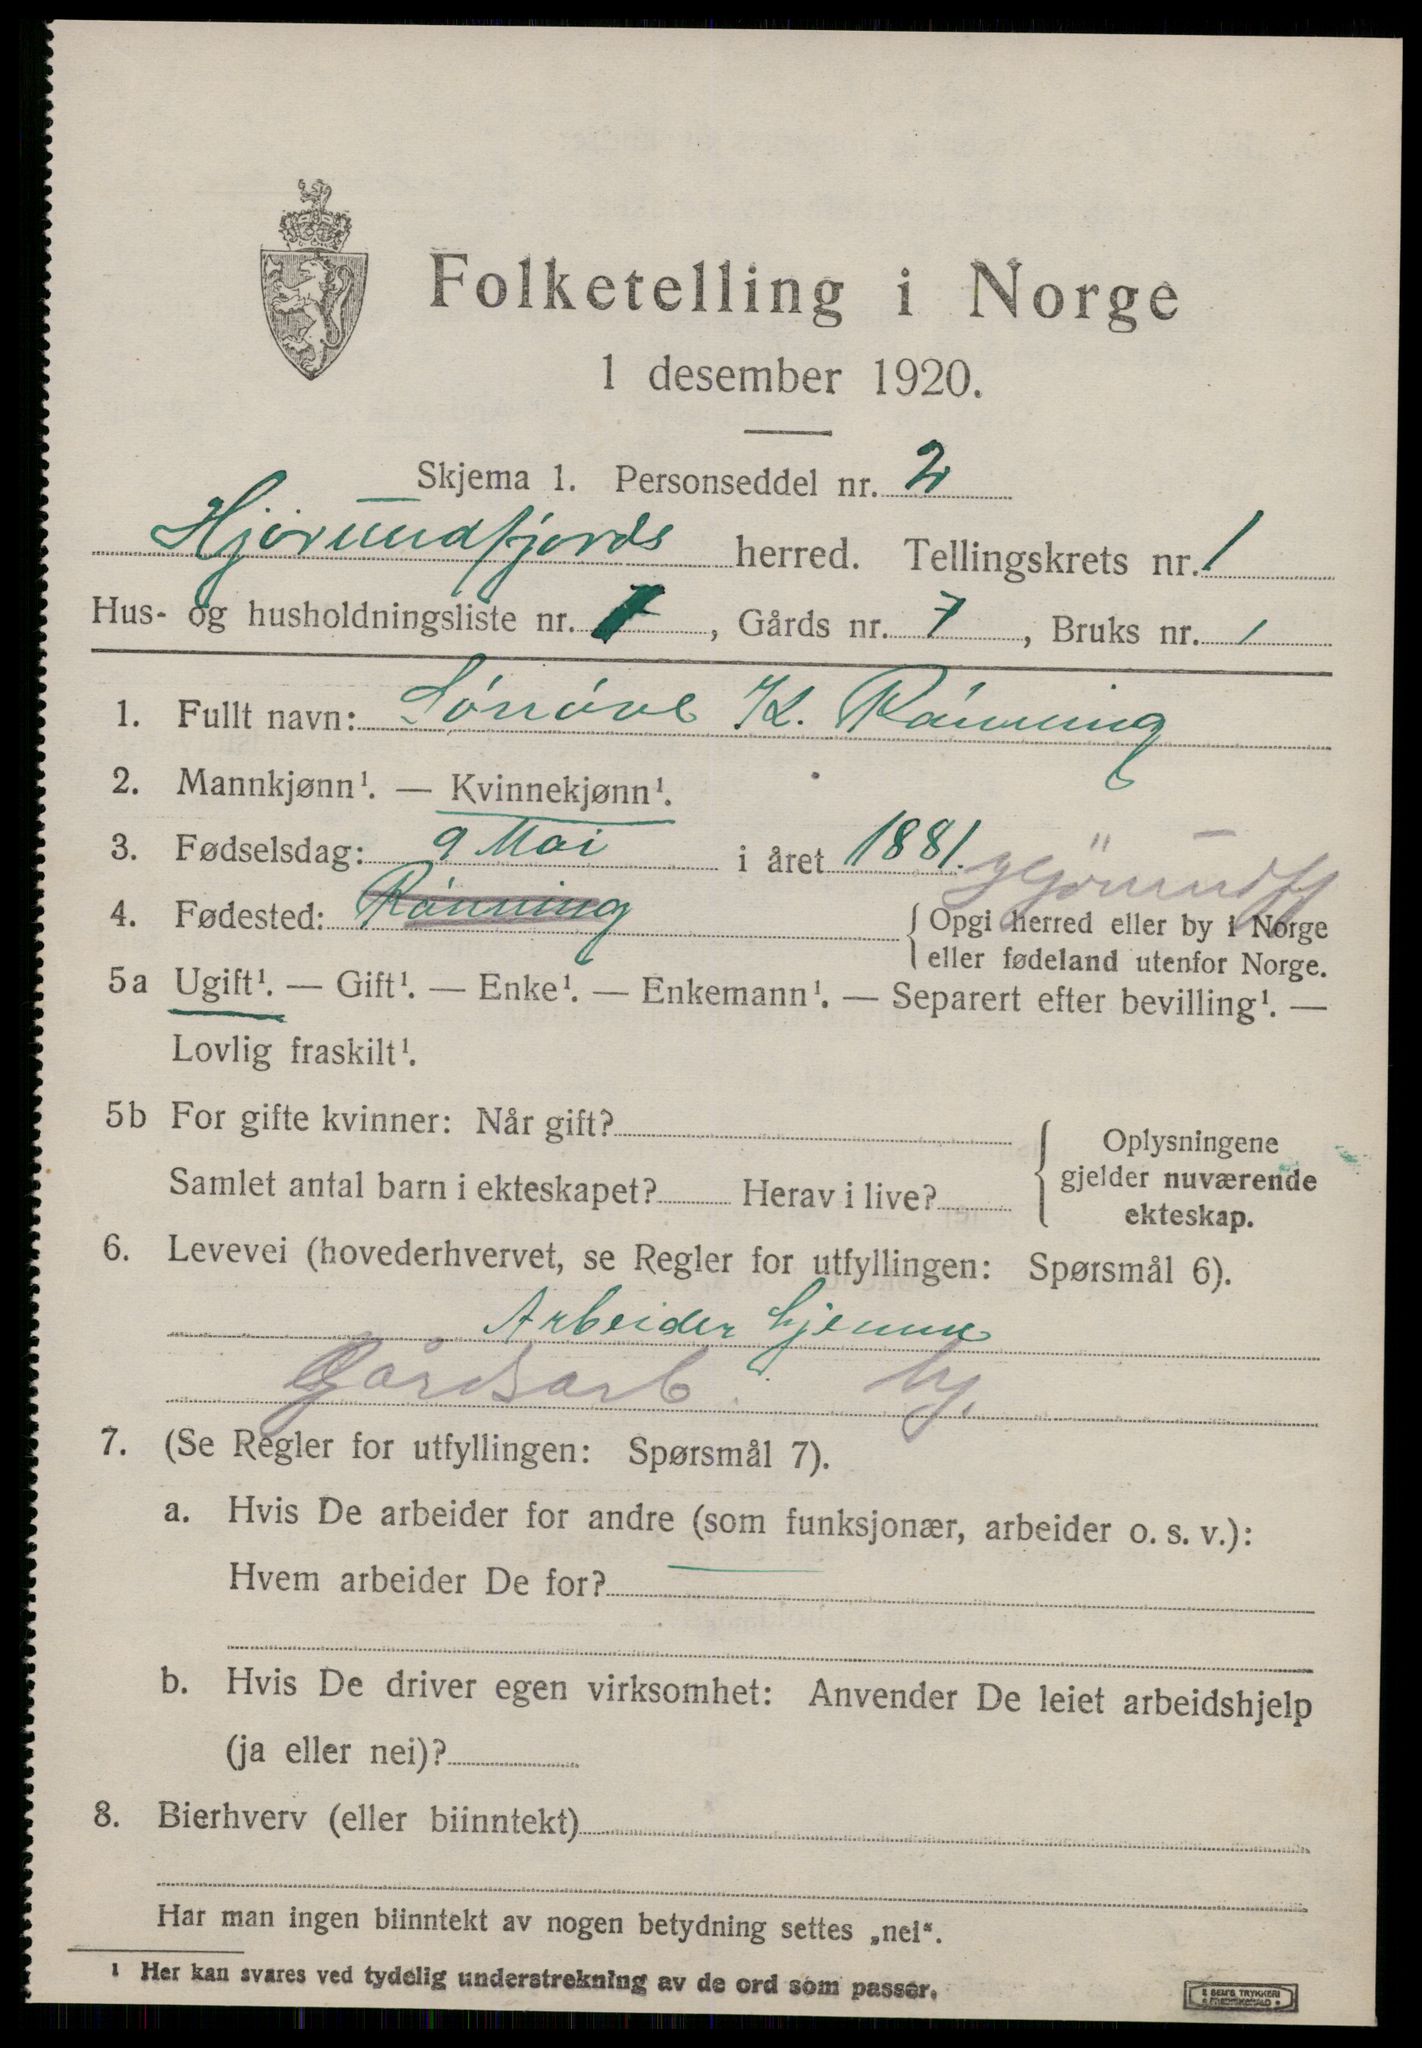 Folketelling i Norge
1 desember 1920.
Skjema 1. Personseddel nr. 2
Hjørundfjords herred. Tellingskrets nr. 1
Hus- og husholdningsliste nr. 7, Gårds nr. 7, Bruks nr. 1
1. Fullt navn: K. Rónning
2. Mannkjønn¹. — Kvinnekjønn¹.
3. Fødselsdag: 9 Mai i året 1881.
Hjörundfj
4. Fødested: Rónning { Opgi herred eller by i Norge
eller fødeland utenfor Norge.
5a Ugift¹. — Gift¹. — Enke¹. — Enkemann¹. — Separert efter bevilling¹. —
Lovlig fraskilt¹.
5b For gifte kvinner: Når gift? { Oplysningene
Samlet antal barn i ekteskapet? Herav i live? gjelder nuværende
ekteskap.
6. Levevei (hovederhvervet, se Regler for utfyllingen: Spørsmål 6).
Arbeider hjemme
Gårdsarb. hj.
7. (Se Regler for utfyllingen: Spørsmål 7).
a. Hvis De arbeider for andre (som funksjonær, arbeider o. s. v.):
Hvem arbeider De for? —
b. Hvis De driver egen virksomhet: Anvender De leiet arbeidshjelp
(ja eller nei)?
8. Bierhverv (eller biinntekt)
Har man ingen biinntekt av nogen betydning settes „nei“.
¹ Her kan svares ved tydelig understrekning av de ord som passer.
SEM'S TRYKKERI
FREDRIKSHALD